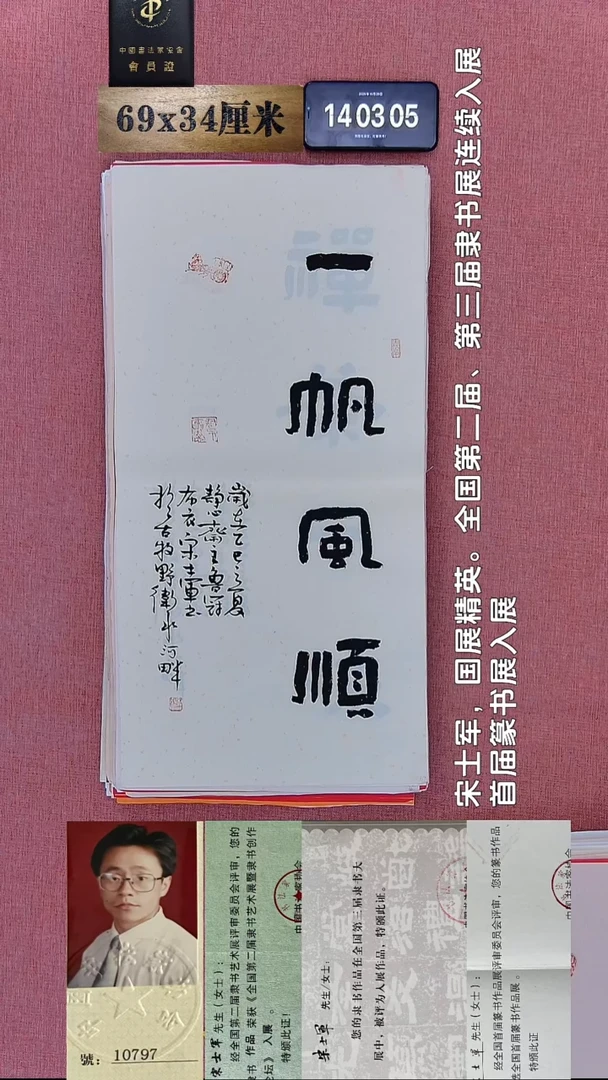 中國書法家協會
會員證
69x34厘米
14 03 05
一帆風順
歲在乙巳之夏
靜心齋主魯冠
布衣宋士軍书
於古牧野衛水河畔
宋士军，国展精英。全国第二届、第三届隶书展连续入展
首届篆书展入展
號：10797
宋士军 先生（女士）：
经全国第二届隶书艺术展评审委员会评审，您的
隶书 作品 荣获《全国第二届隶书艺术展暨隶书创作
论坛》入展。
特颁此证！
宋士军 先生/女士：
您的隶书作品在全国第三届隶书大
展中，被评为入展作品，特颁此证。
士军 先生（女士）：
经全国首届篆书作品展评审委员会评审，您的篆书作品
选全国首届篆书作品展。
特颁此证